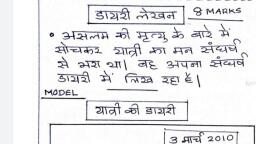 डायरी लेखन 8 MARKS
• असलम की मृत्यु के बारे में
सोचकर यात्री का मन संघर्ष
से भरा था। वह अपना संघर्ष
डायरी में लिख रहा है।
MODEL
यात्री की डायरी
3 मार्च 2010